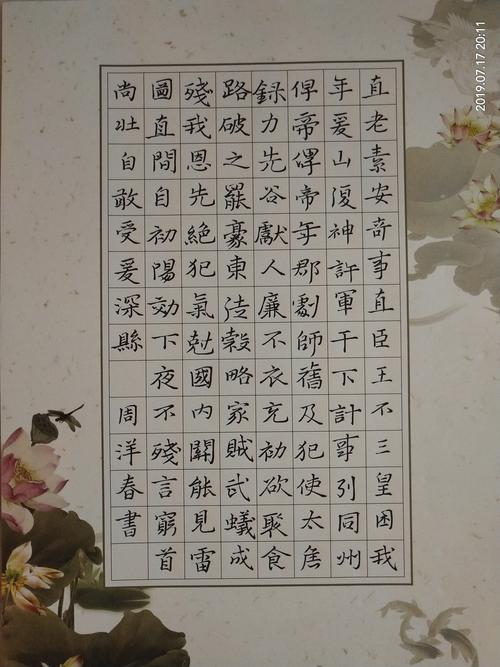 直老素安奇事直臣王不三皇困我
年爰山復神許軍干下計事列同州
俾帝俾帝年郡劇師舊及犯使太
録力先谷獻人廉不衣充初欲聚食
路破之羆豪東法穀略家賊武蟻成
殘我恩先絕犯氣剋國内關能見雷
圖直間自初陽効下夜不殘言窮首
尚壯自敢受爰深縣 周洋春書
2019.07.17 20:11